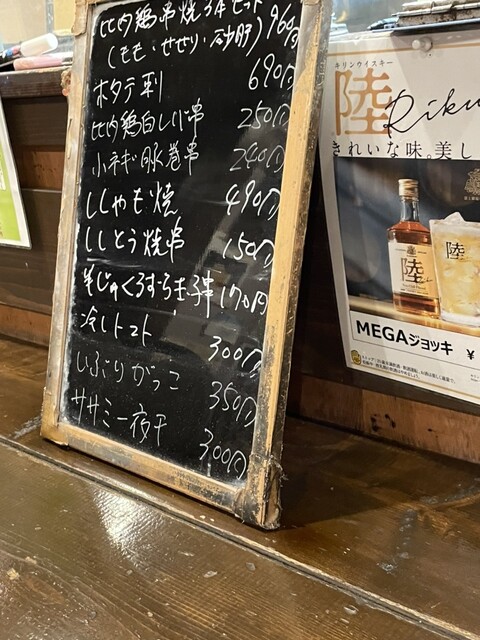 比内鶏串焼3本セット 960円
(もも・せせり・砂肝)
ホタテ刺 690円
比内鶏白レバ串 250円
小ネギ豚巻串 240円
ししゃも焼 490円
ししとう焼串 150円
半じゅくうずら玉子串 170円
冷しトマト 300円
いぶりがっこ 350円
ササミ一夜干 300円
キリンウイスキー
陸 Riku
きれいな味。美し
陸
陸
MEGAジョッキ ¥